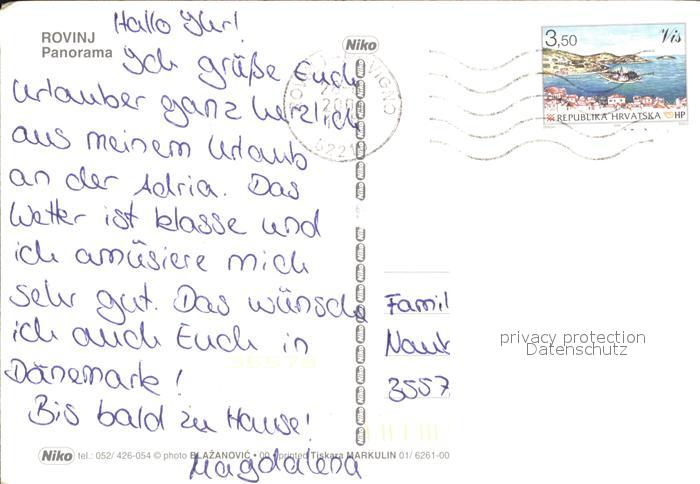 ROVINJ
Panorama
Niko
3,50
Vis
REPUBLIKA HRVATSKA HP
52210
Hallo Ihr!
Ich grüße Euch
Urlauber ganz herzlich
aus meinem Urlaub
an der Adria. Das
Wetter ist klasse und
ich amüsiere mich
sehr gut. Das wünsche
ich auch Euch in
Dänemark!
Bis bald zu Hause!
Magdalena
Famil
3557
privacy protection
Datenschutz
Niko tel.: 052/ 426-054 © photo BLAŽANOVIĆ • 00 • printed Tiskara MARKULIN 01/ 6261-00